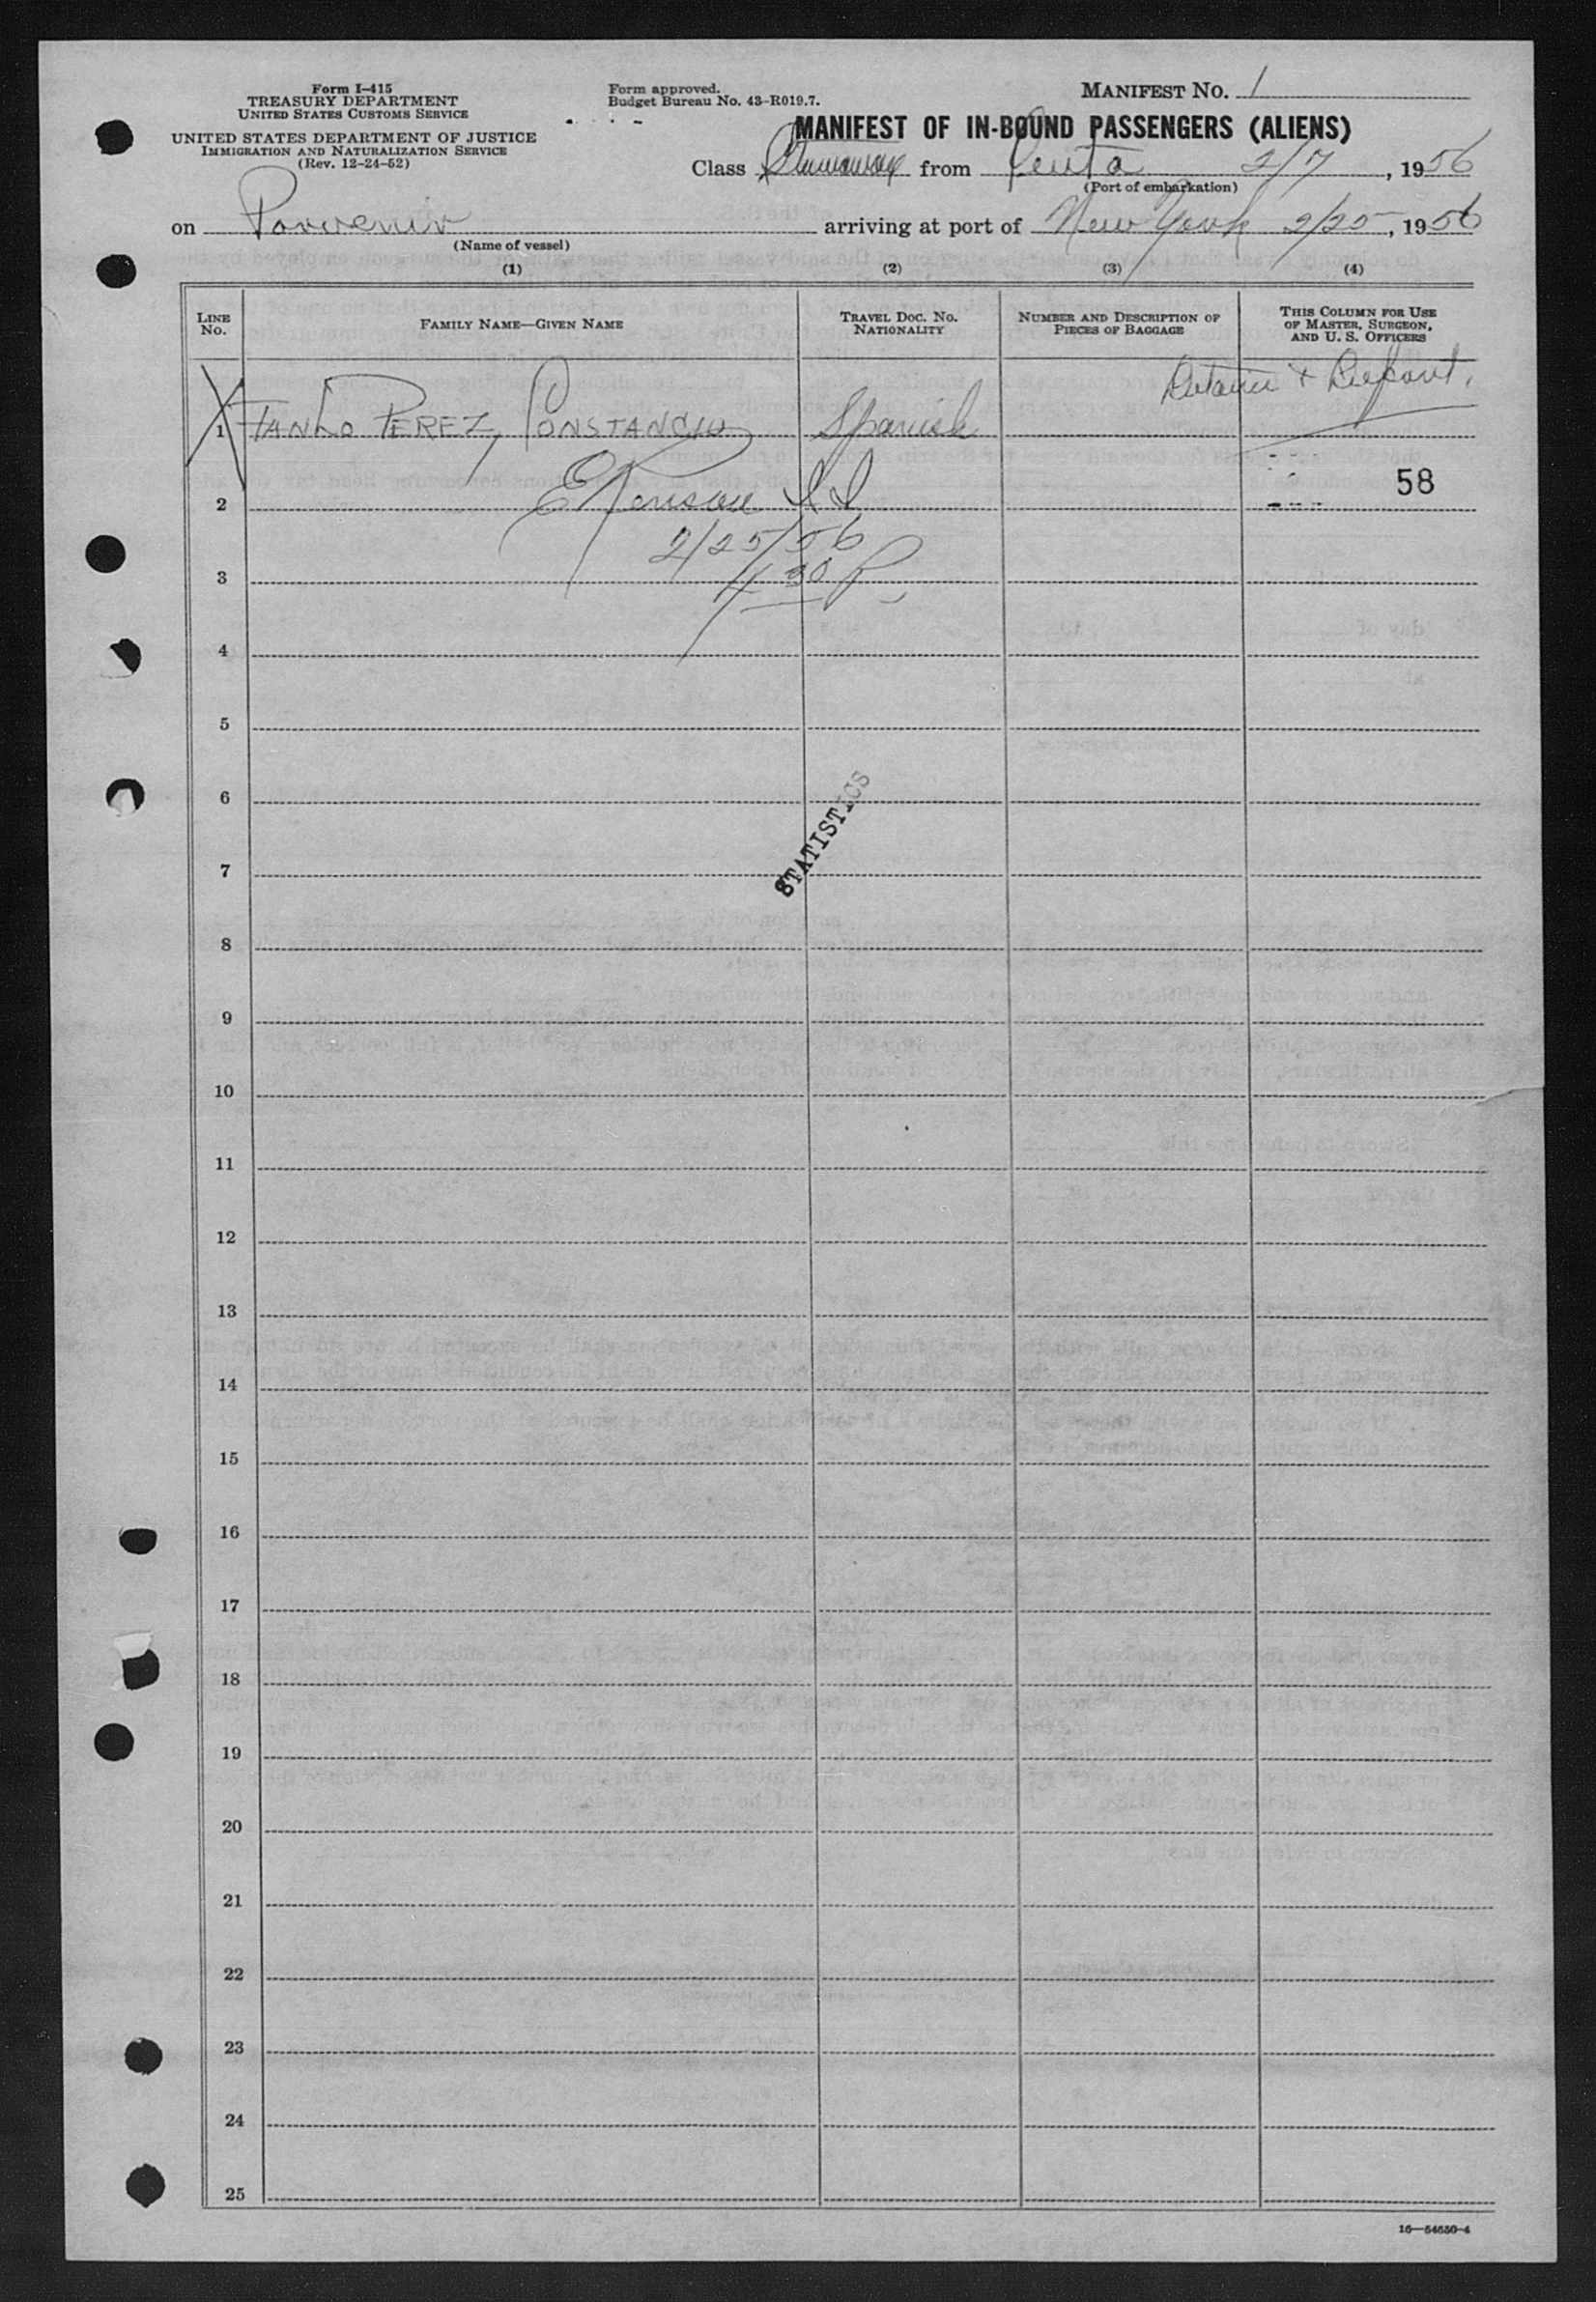 Form I-415
TREASURY DEPARTMENT
UNITED STATES CUSTOMS SERVICE
UNITED STATES DEPARTMENT OF JUSTICE
IMMIGRATION AND NATURALIZATION SERVICE
(Rev. 12-24-52)
Form approved.
Budget Bureau No. 43-R019.7.
MANIFEST NO. 1
MANIFEST OF IN-BOUND PASSENGERS (ALIENS)
Class Stowaway from Ceuta 2/7, 1956
(Port of embarkation)
on Porvenir arriving at port of New York 2/25, 1956
(Name of vessel)
(1) (2) (3) (4)
LINE NO.
FAMILY NAME—GIVEN NAME
TRAVEL DOC. NO. NATIONALITY
NUMBER AND DESCRIPTION OF PIECES OF BAGGAGE
THIS COLUMN FOR USE OF MASTER, SURGEON, AND U. S. OFFICERS
Detain + Deport.
1 PEREZ, CONSTANCIO Spanish
58
2
2/25/56
3 4 30 P
4
5
6
STATISTICS
7
8
9
10
11
12
13
14
15
16
17
18
19
20
21
22
23
24
25
16—54650-4